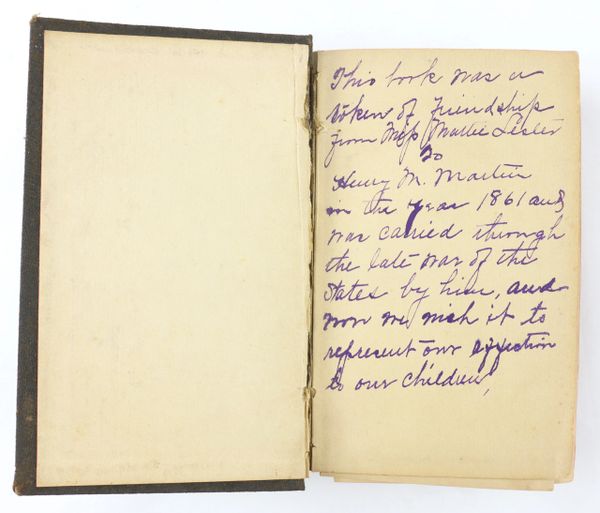 This book was a
token of Friendship
from Miss Mattie Lester
To
Henry M. Martin
in the year 1861 and
was carried through
the late war of the
States by him, and
now we wish it to
represent our affection
to our children,